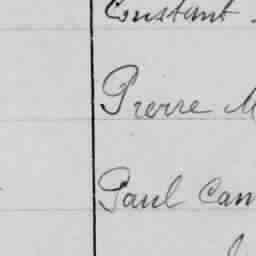 Constant
Pierre M
Paul Cam